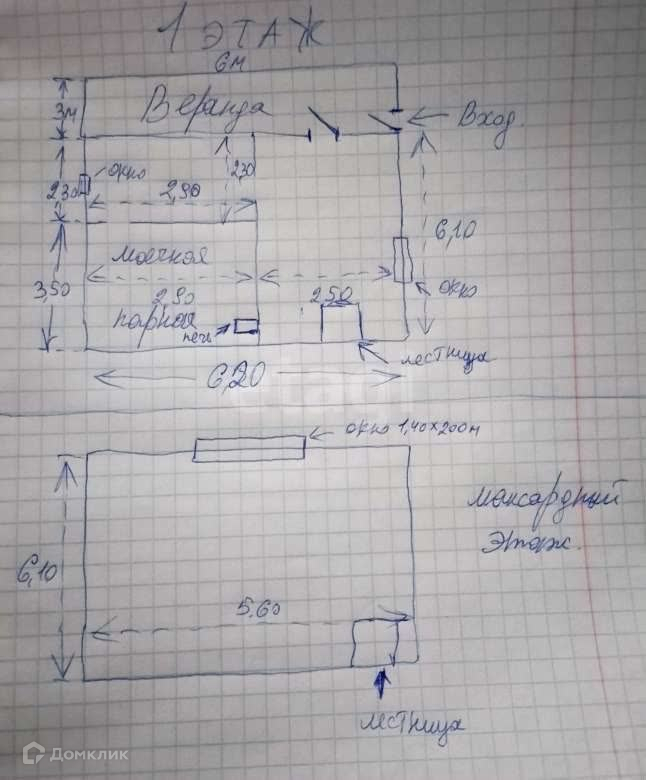 1 ЭТАЖ
6м
3м
Веранда
Вход.
окно
2,30
2,30
2,90
6,10
моечная
3,50
2.90
2.50
окно
парная
печь
лестница
6,20
окно 1,40х200м
мансардный
этаж.
6,10
5.60
лестница
Домклик